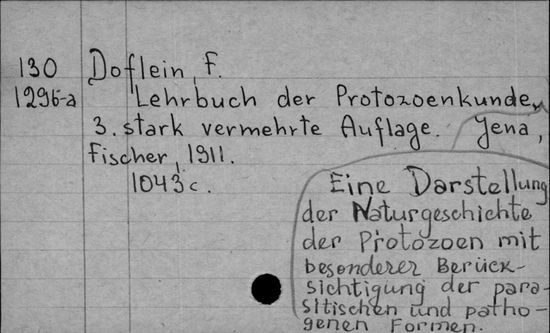 130 Doflein, F.
1296-a Lehrbuch der Protozoenkunde,
3. stark vermehrte Auflage. Jena,
Fischer, 1911.
1043 c.
Eine Darstellung
der Naturgeschichte
der Protozoen mit
besonderer Berück-
sichtigung der para-
sitischen und patho-
genen Formen.